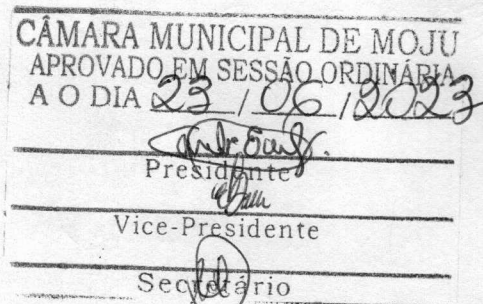 CÂMARA MUNICIPAL DE MOJU
APROVADO EM SESSÃO ORDINÁRIA
A O DIA 23 / 06 / 2023
Presidente
Vice-Presidente
Secretário